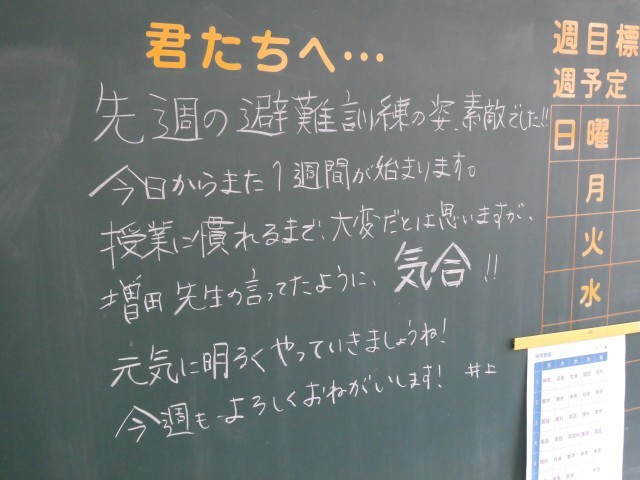 君たちへ…
先週の避難訓練の姿、素敵でした!!
今日からまた1週間が始まります。
授業に慣れるまで、大変だとは思いますが、
増田先生の言ってたように、気合!!
元気に明るくやっていきましょうね!
今週もよろしくおねがいします! 井上
週目標
週予定
日曜
月
火
水